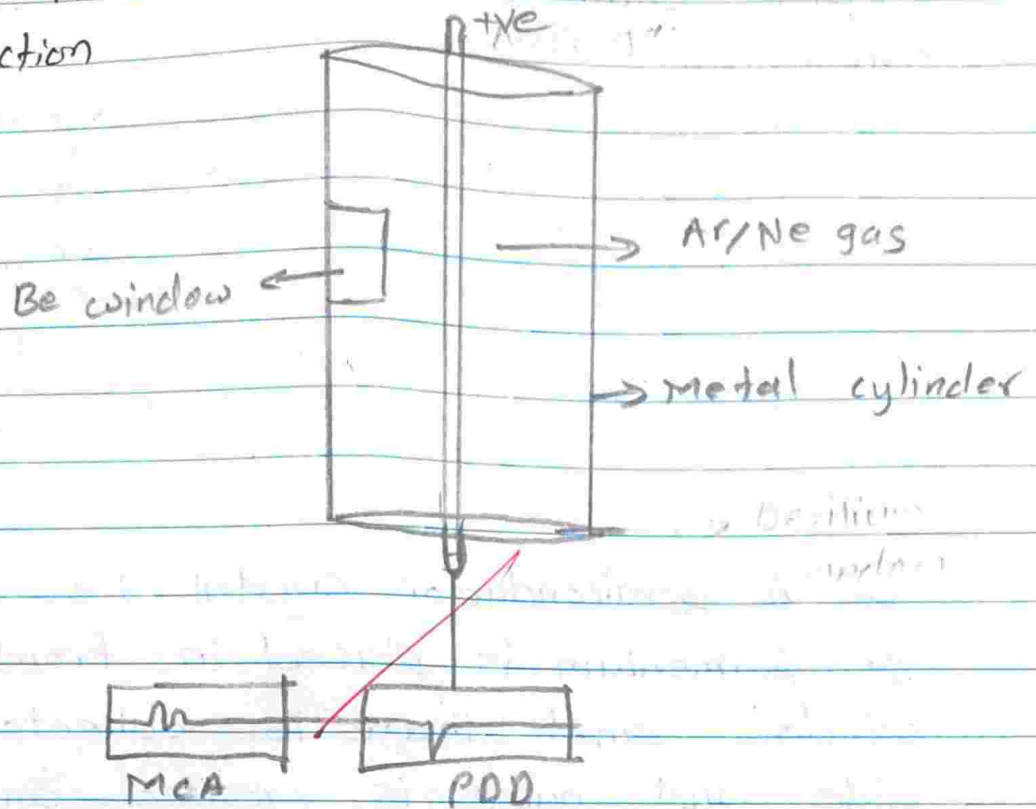 ction
+ve
Ar/Ne gas
Be window
Metal cylinder
MCA
PDD